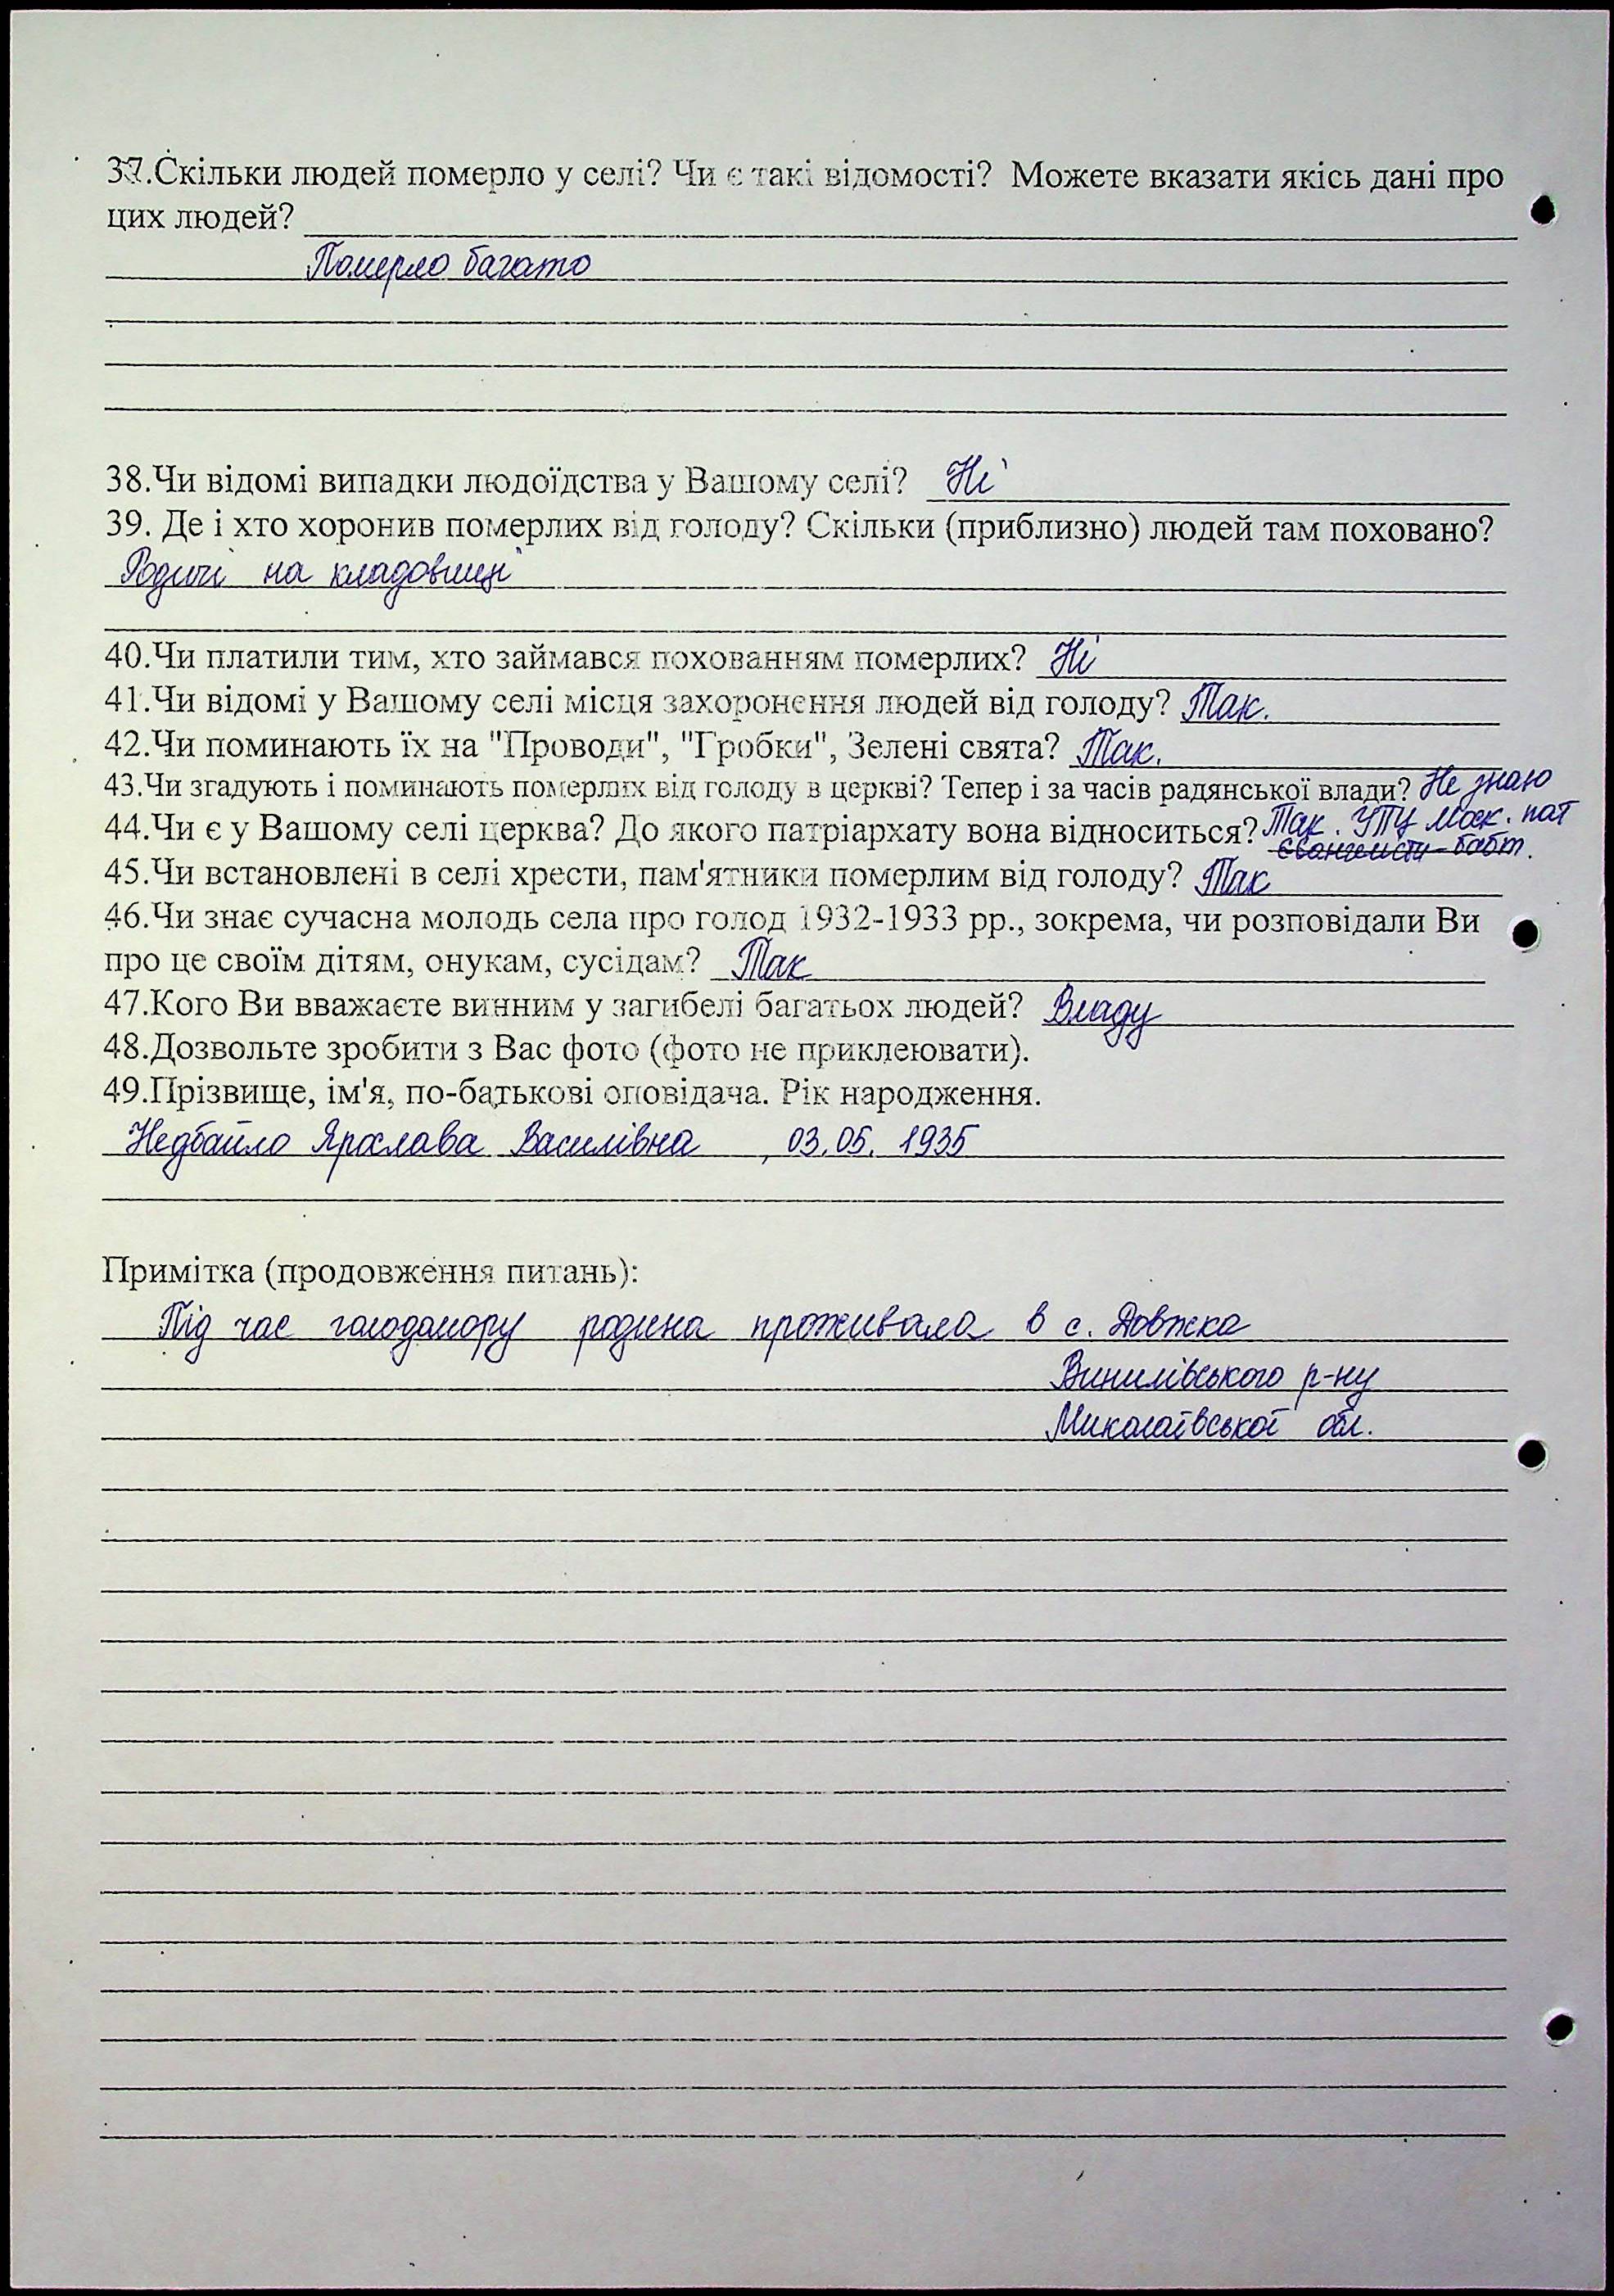 37.Скільки людей померло у селі? Чи є такі відомості? Можете вказати якісь дані про
цих людей?
Померло багато
38.Чи відомі випадки людоїдства у Вашому селі? Ні
39. Де і хто хоронив померлих від голоду? Скільки (приблизно) людей там поховано?
Родичі на кладовищі
40.Чи платили тим, хто займався похованням померлих? Ні
41.Чи відомі у Вашому селі місця захоронення людей від голоду? Так.
42.Чи поминають їх на "Проводи", "Гробки", Зелені свята? Так.
43.Чи згадують і поминають померлих від голоду в церкві? Тепер і за часів радянської влади? Не знаю
44.Чи є у Вашому селі церква? До якого патріархату вона відноситься? Так. УПЦ Моск. пат
євангелисти-бабт.
45.Чи встановлені в селі хрести, пам'ятники померлим від голоду? Так
46.Чи знає сучасна молодь села про голод 1932-1933 рр., зокрема, чи розповідали Ви
про це своїм дітям, онукам, сусідам? Так
47.Кого Ви вважаєте винним у загибелі багатьох людей? Владу
48.Дозвольте зробити з Вас фото (фото не приклеювати).
49.Прізвище, ім'я, по-батькові оповідача. Рік народження.
Недбайло Ярослава Василівна , 03.05. 1935
Примітка (продовження питань):
Під час голодомору родина проживала в с. Довжка
Винилівського р-ну
Миколаївської обл.